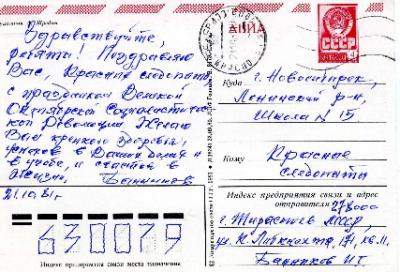 Здравствуйте,
ребята! Поздравляю
Вас, Красные следопыты
с праздником Великой
Октябрьской Социалистичес
кой Революции Желаю
Вам крепкого здоровья,
успехов в Вашей
в учебе, и счастья в
жизни.
21.10.81г.
630079
Индекс предприятия связи места назначения
АВИА
СССР
4
Куда
г. Новосибирск,
Ленинский р-н,
Школа N 15
Кому
Красные
следопыты
Индекс предприятия связи и адрес
отправителя
278000
г. Тирасполь МССР,
ул. К. Либкнехта, 171, кв. 11,